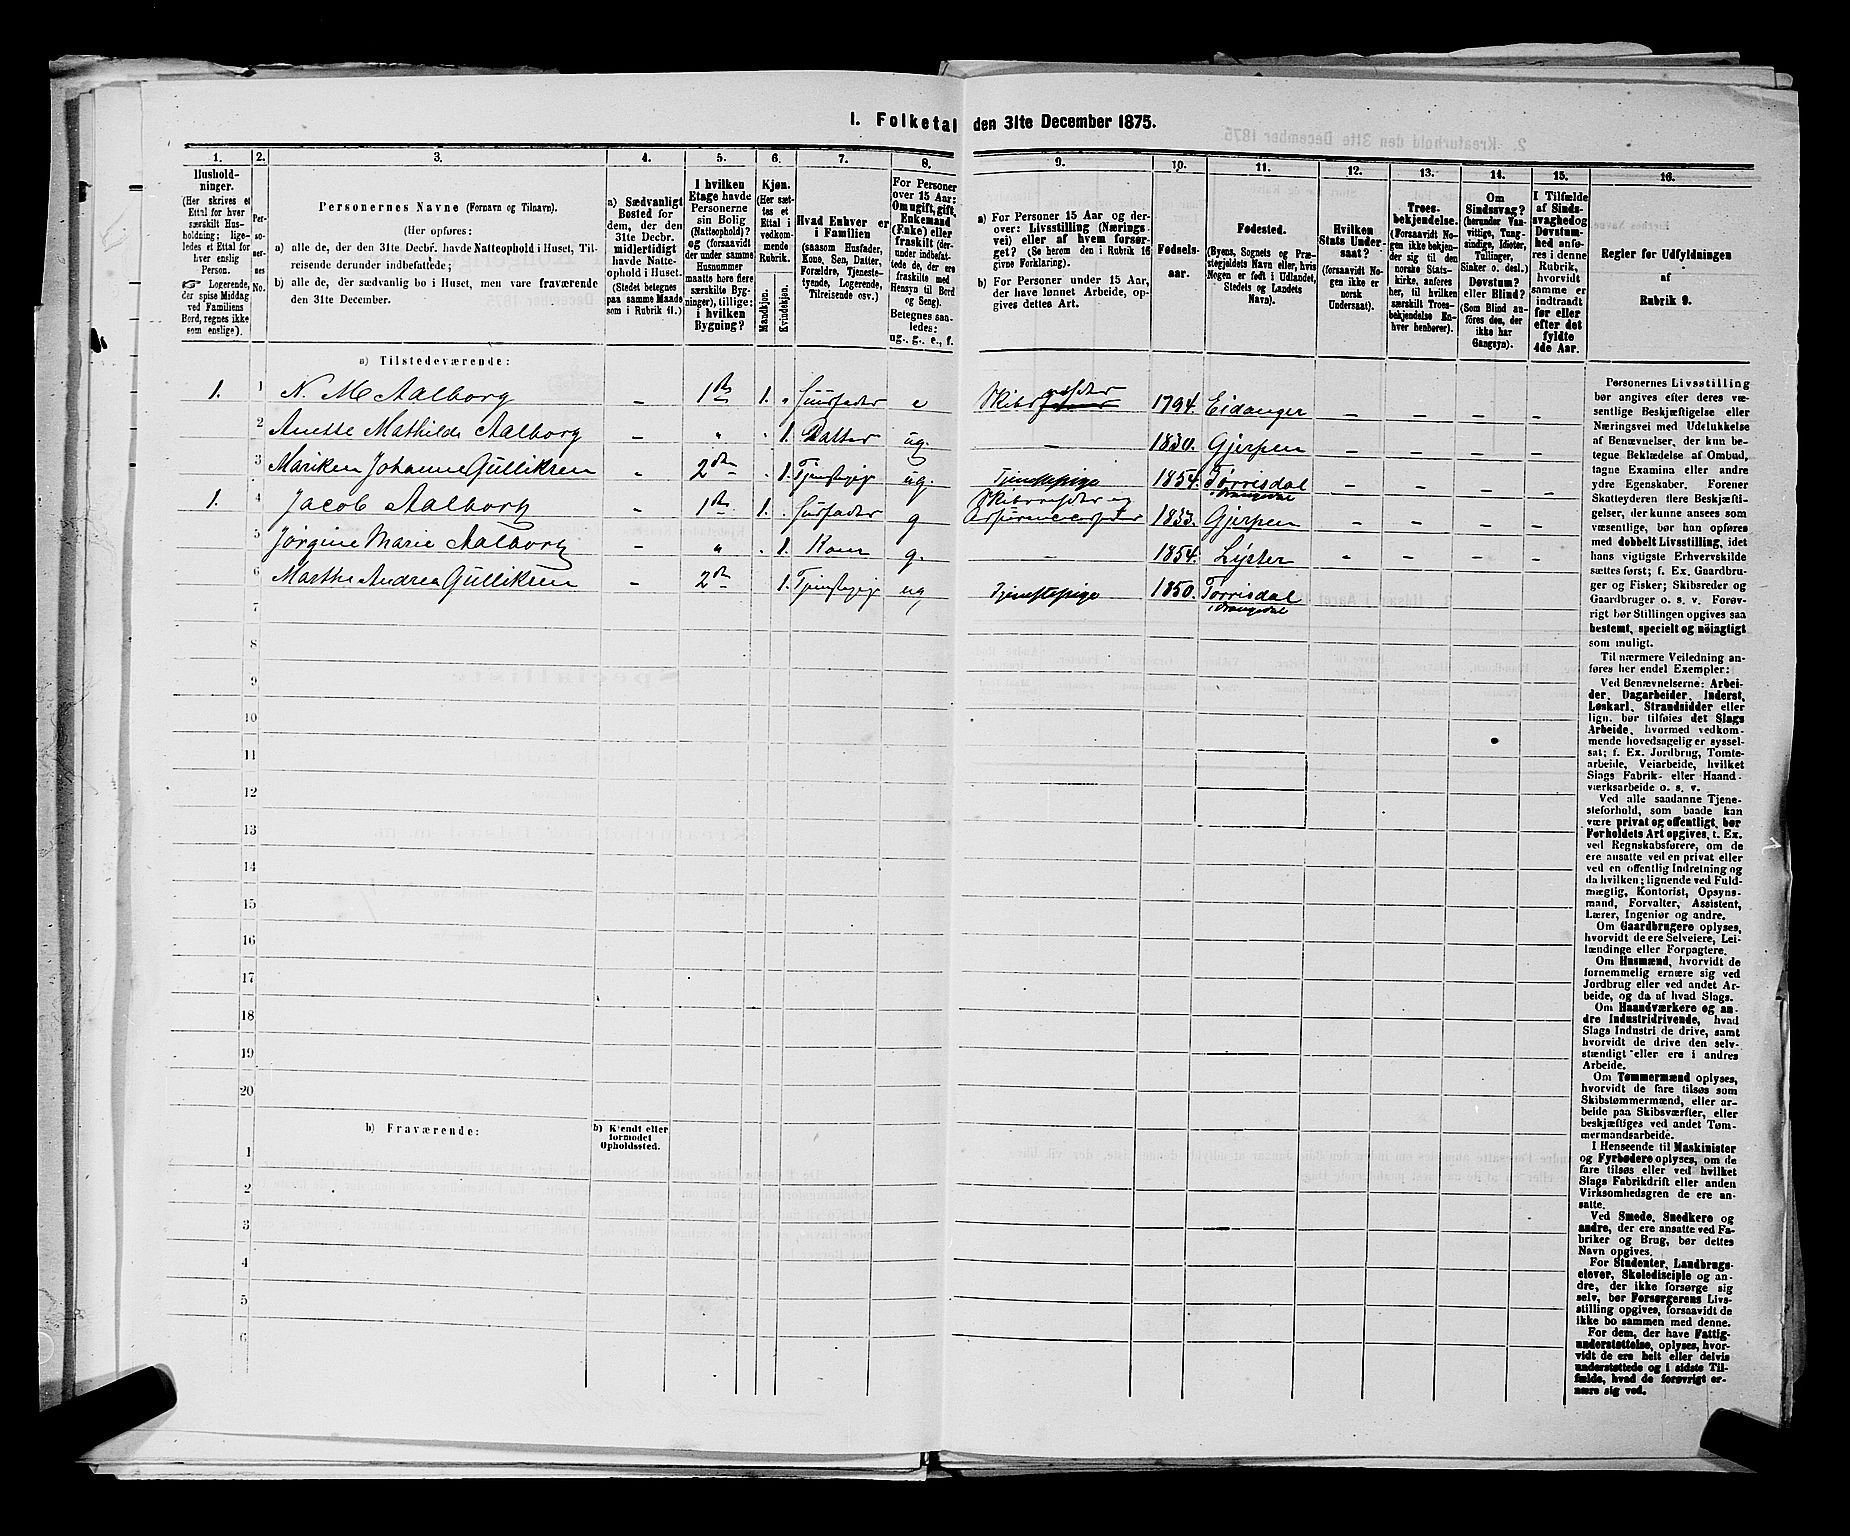 1. Folketal den 31te December 1875.
1.
Hushold-
ninger.
(Her skrives et
Ettal for hver
særskilt Hus-
holdning; lige-
ledes et Ettal for
hver enslig
Person.
Logerende,
der spise Middag
ved Familiens
Bord, regnes ikke
som enslige).
2.
Per-
so-
ner-
nes
No.
3.
Personernes Navne (Fornavn og Tilnavn).
(Her opføres:
a) alle de, der den 31te Decbr. havde Natteophold i Huset, Til-
reisende derunder indbefattede;
b) alle de, der sædvanlig bo i Huset, men vare fraværende
den 31te December.
4.
a) Sædvanligt
Bosted for
dem, der den
31te Decbr.
midlertidigt
havde Natte-
ophold i Huset.
(Stedet betegnes
paa samme Maade
som i Rubrik 11.)
5.
I hvilken
Etage havde
Personerne
sin Bolig
(Natteophold)?
og (forsaavidt
der under samme
Husnummer
maatte høre flere
særskilte Byg-
ninger), tillige:
i hvilken
Bygning?
6.
Kjøn.
(Her sæt-
tes et
Ettal i
vedkom-
mende
Rubrik.
Mandkjøn.
Kvindekjøn.
7.
Hvad Enhver er
i Familien
(saasom Husfader,
Kone, Søn, Datter,
Forældre, Tjeneste-
tyende, Logerende,
Tilreisende osv.)
8.
For Personer
over 15 Aar:
Om ugift, gift,
Enkemand
(Enke) eller
fraskilt (der-
under indbefat-
tede de, der ere
fraskilte med
Hensyn til Bord
og Seng).
Betegnes saa-
ledes:
ug., g., e., f.
9.
a) For Personer 15 Aar og der-
over: Livsstilling (Nærings-
vei) eller af hvem forsør-
get? (Se herom den i Rubrik 16
givne Forklaring).
b) For Personer under 15 Aar,
der have lønnet Arbeide, op-
gives dettes Art.
10.
Fødsels-
aar.
11.
Fødested.
(Byens, Sognets og Præ-
stegjeldets Navn eller, hvis
Nogen er født i Udlandet,
Stedets og Landets
Navn).
12.
Hvilken
Stats Under-
saat?
(forsaavidt No-
gen ikke er
norsk
Undersaat).
13.
Troes-
bekjendelse.
(Forsaavidt No-
gen ikke bekjen-
der sig til den
norske Stats-
kirke, anføres
her, til hvilken
særskilt Troes-
bekjendelse En-
hver henhører).
14.
Om
Sindssvag?
(herunder Van-
vittige, Tung-
sindige, Idioter,
Tullinger,
Sinker o. desl.)
Døvstum?
eller Blind?
(Som Blind an-
føres den, der
ikke har
Gangsyn).
15.
I Tilfælde
af Sinds-
svaghed og
Døvstum-
hed anfø-
res i denne
Rubrik,
hvorvidt
samme er
indtraadt
før eller
efter det
fyldte
4de Aar.
16.
Regler for Udfyldningen
af
Rubrik 9.
a) Tilstedeværende:
1. 1 N. M Aalborg 1ste 1. " Huusfader e Skibsreder 1794. Eidanger – – – –
2 Anette Mathilde Aalborg – " " 1. Datter ug. – 1830. Gjerpen – – – –
3 Mariken Johanne Gulliksen – 2den " 1. Tjenstepige ug. Tjenstepige 1854. Tørrisdal i Drangedal – – – –
1. 4 Jacob Aalborg – 1ste 1. . Husfader g Skibsreder og 1833. Gjerpen – – – –
5 Jørgine Marie Aalborg – " . 1. Kone g. – 1854. Lyster – – – –
6 Marthe Andrea Gulliksen – 2den 1. Tjenstepige ug Tjenstepige 1850. Tørrisdal i Drangedal
7
8
9
10
11
12
13
14
15
16
17
18
19
20
b) Fraværende:
b) Kjendt eller
formodet
Opholdssted.
1
2
3
4
5
6
Personernes Livsstilling
bør angives efter deres væ-
sentlige Beskjæftigelse eller
Næringsvei med Udelukkelse
af Benævnelser, der kun be-
tegne Beklædelse af Ombud,
tagne Examina eller andre
ydre Egenskaber. Forener
Skatteyderen flere Beskjæfti-
gelser, der kunne ansees som
væsentlige, bør han opføres
med dobbelt Livsstilling, idet
hans vigtigste Erhvervskilde
sættes først; f. Ex. Gaardbru-
ger og Fisker; Skibsreder og
Gaardbruger o. s. v. Forøv-
rigt bør Stillingen opgives saa
bestemt, specielt og nøiagtigt
som muligt.
Til nærmere Veiledning an-
føres her endel Exempler:
Ved Benævnelserne: Arbei-
der, Dagarbeider, Inderst,
Løskarl, Strandsidder eller
lign. bør tilføies det Slags
Arbeide, hvormed vedkom-
mende hovedsagelig er syssel-
sat; f. Ex. Jordbrug, Tomte-
arbeide, Veiarbeide, hvilket
Slags Fabrik- eller Haand-
værksarbeide o. s. v.
Ved alle saadanne Tjene-
steforhold, som baade kan
være privat og offentligt, bør
Forholdets Art opgives, t. Ex.
ved Regnskabsførere, om de
ere ansatte ved en privat eller
ved en offentlig Indretning og
da hvilken; lignende ved Fuld-
mægtig, Kontorist, Opsyns-
mand, Forvalter, Assistent,
Lærer, Ingeniør og andre.
Om Gaardbrugere oplyses,
hvorvidt de ere Selveiere, Lei-
lændinge eller Forpagtere.
Om Husmænd, hvorvidt de
fornemmelig ernære sig ved
Jordbrug eller ved andet Ar-
beide, og da af hvad Slags.
Om Haandværkere og an-
dre Industridrivende, hvad
Slags Industri de drive, samt
hvorvidt de drive den selv-
stændigt eller ere i andres
Arbeide.
Om Tømmermænd oplyses,
hvorvidt de fare tilsøs som
Skibstømmermænd, eller ar-
beide paa Skibsværfter, eller
beskjæftiges ved andet Tøm-
mermandsarbeide.
I Henseende til Maskinister
og Fyrbødere oplyses, om de
fare tilsøs eller ved hvilket
Slags Fabrikdrift eller anden
Virksomhedsgren de ere an-
satte.
Ved Smede, Snedkere og
andre, der ere ansatte ved Fa-
briker og Brug, bør dettes
Navn opgives.
For Studenter, Landbrugs-
elever, Skoledisciple og an-
dre, der ikke forsørge sig
selv, bør Forsørgerens Livs-
stilling opgives, forsaavidt de
ikke bo sammen med denne.
For dem, der have Fattig-
understøttelse, oplyses, hvor-
vidt de ere helt eller delvis
understøttede og i sidste Til-
fælde, hvad de forøvrigt er-
nære sig ved.